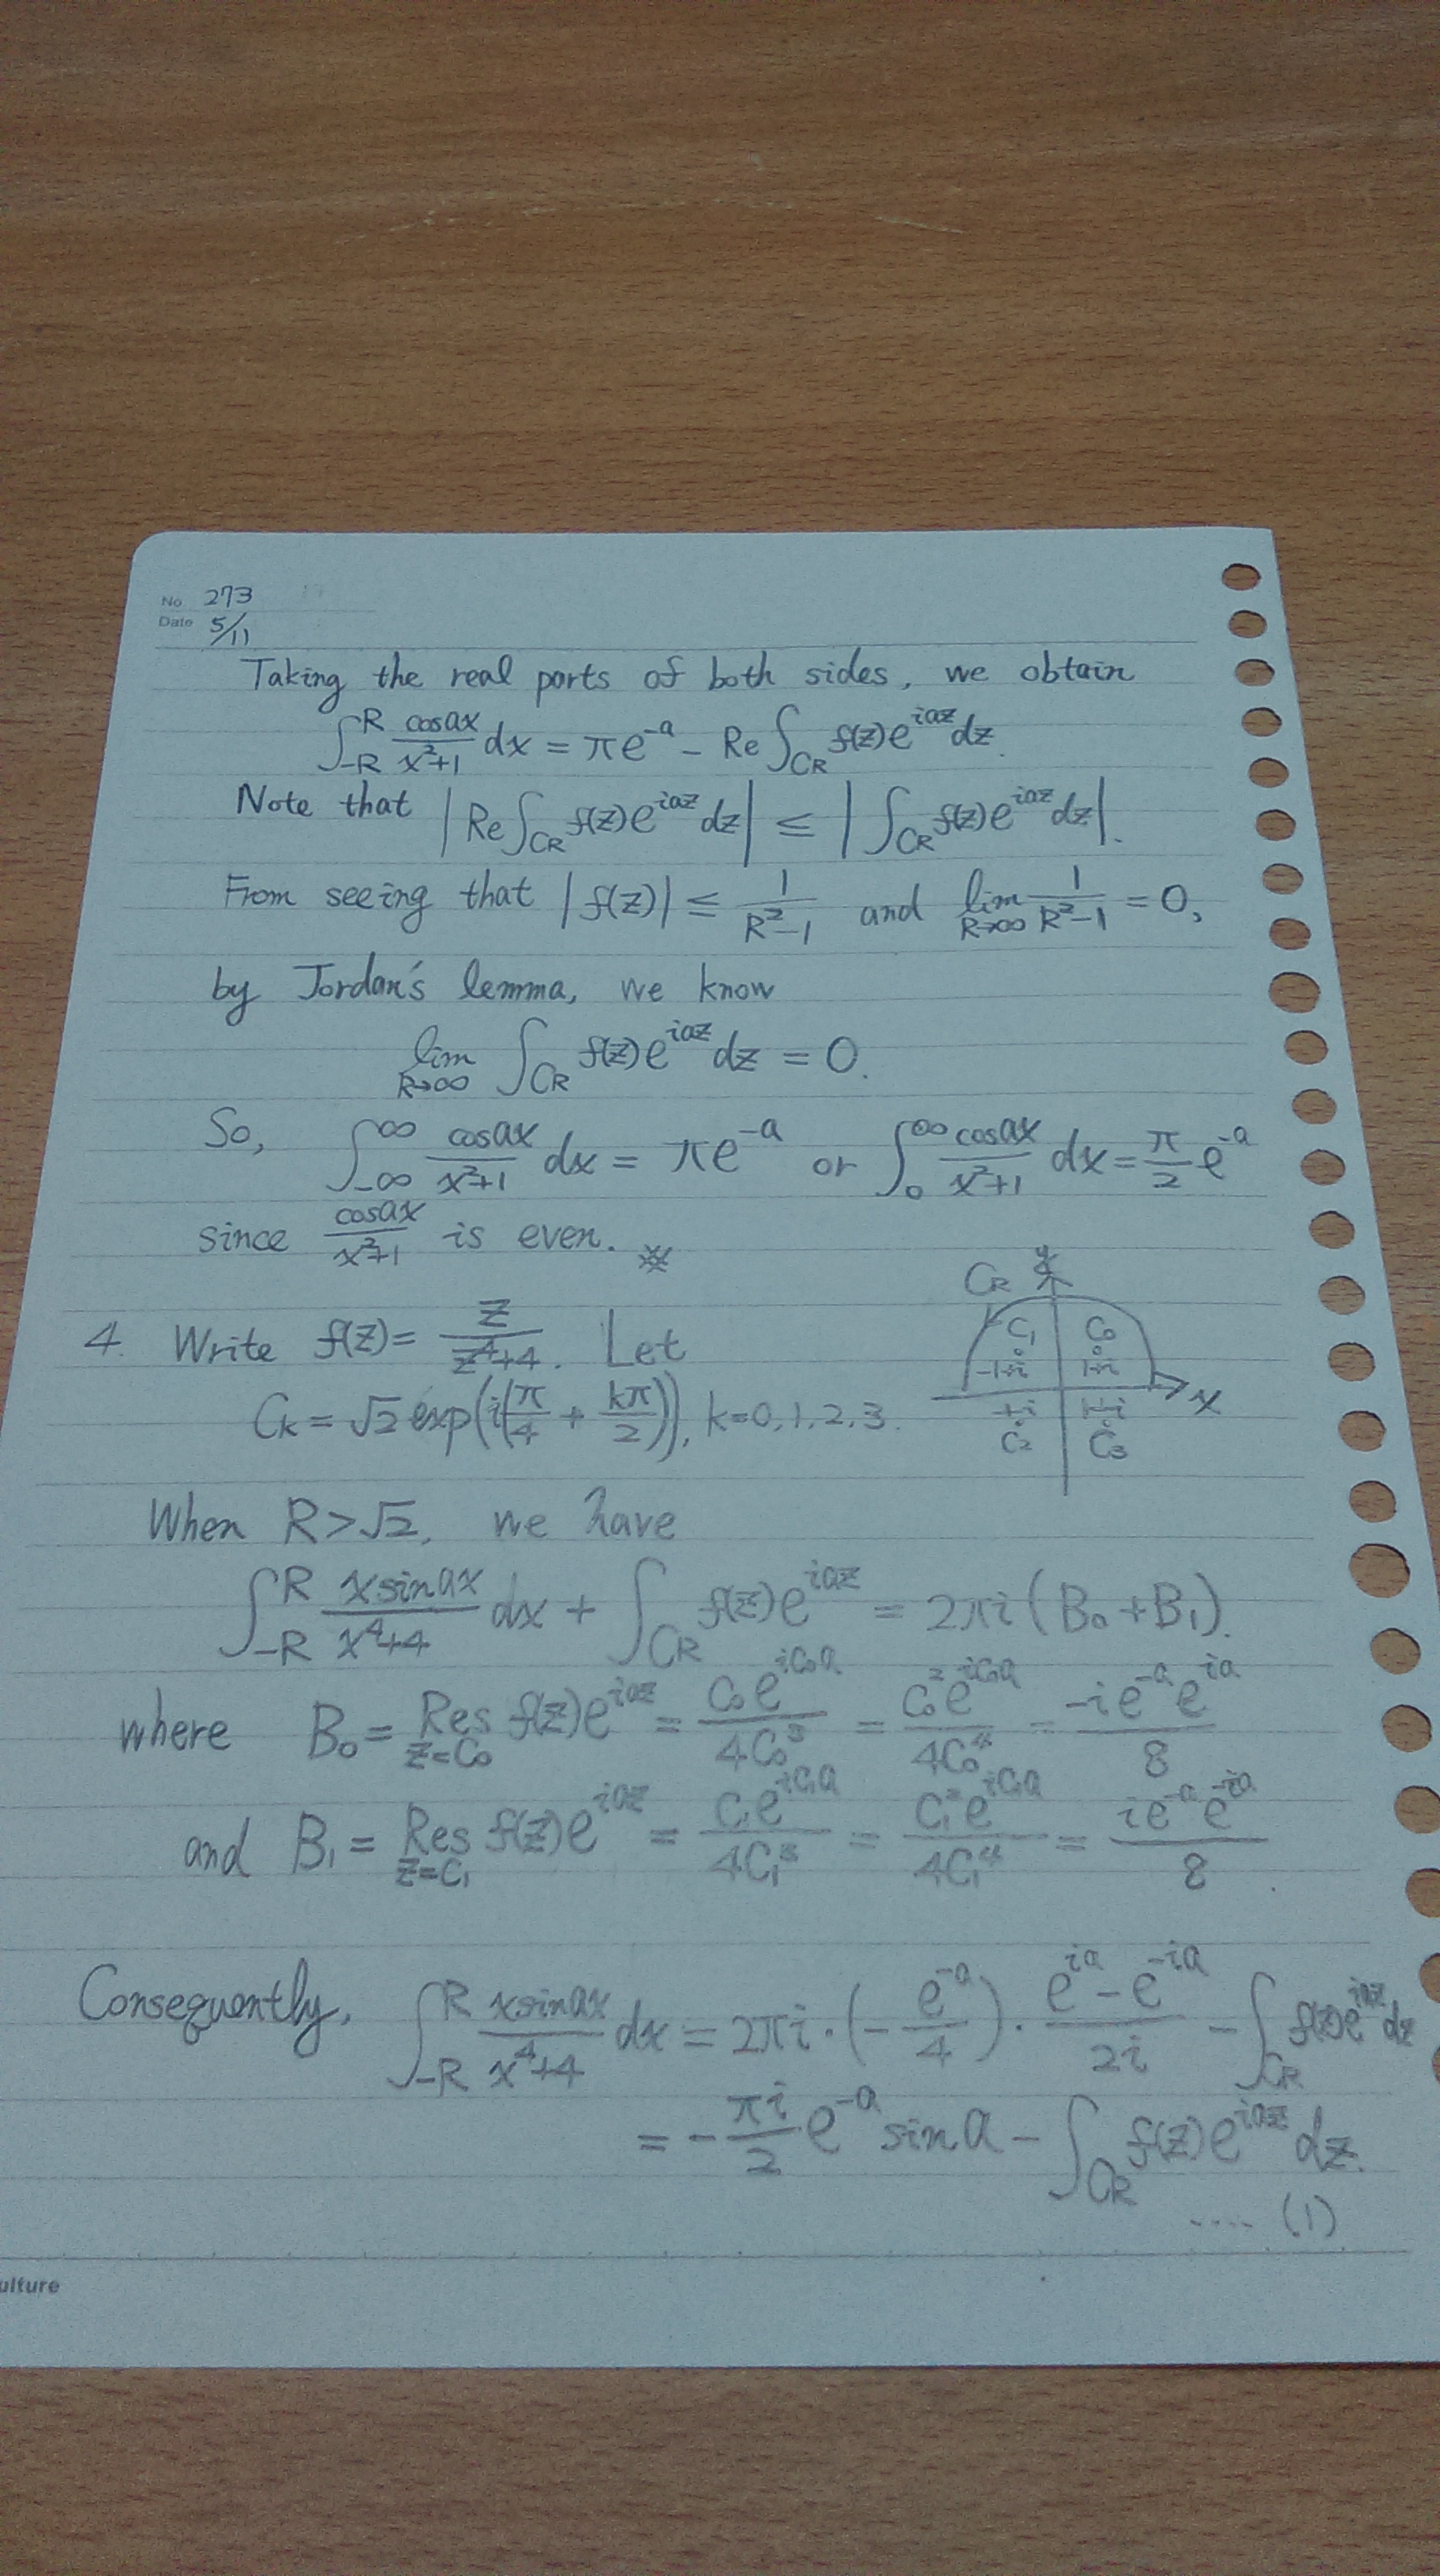 No. 273
Date 5/11
Taking the real parts of both sides, we obtain
∫_{-R}^{R} \frac{cosax}{x²+1} dx = πe^{-a} - Re∫_{C_R} f(z)e^{iaz}dz.
Note that |Re∫_{C_R} f(z)e^{iaz}dz| ≤ |∫_{C_R} f(z)e^{iaz}dz|.
From seeing that |f(z)| ≤ \frac{1}{R²-1} and lim_{R→∞} \frac{1}{R²-1} = 0,
by Jordan's lemma, we know
lim_{R→∞} ∫_{C_R} f(z)e^{iaz}dz = 0.
So, ∫_{-∞}^{∞} \frac{cosax}{x²+1} dx = πe^{-a} or ∫_{0}^{∞} \frac{cosax}{x²+1} dx = \frac{π}{2}e^{-a}
since \frac{cosax}{x²+1} is even. ※
4. Write f(z) = \frac{z}{z⁴+4}. Let
C_k = √2 exp(i(\frac{π}{4} + \frac{kπ}{2})), k=0,1,2,3.
C_R y
C₁ C₀
-1+i 1+i
x
1-i
C₂ C₃
When R>√2, we have
∫_{-R}^{R} \frac{xsinax}{x⁴+4} dx + ∫_{C_R} f(z)e^{iaz} = 2πi(B₀+B₁).
where B₀ = Res_{z=C₀} f(z)e^{iaz} = \frac{C₀e^{iC₀a}}{4C₀³} = \frac{C₀²e^{iC₀a}}{4C₀⁴} = \frac{-ie^{-a}e^{ia}}{8}
and B₁ = Res_{z=C₁} f(z)e^{iaz} = \frac{C₁e^{iC₁a}}{4C₁³} = \frac{C₁²e^{iC₁a}}{4C₁⁴} = \frac{ie^{-a}e^{-ia}}{8}.
Consequently, ∫_{-R}^{R} \frac{xsinax}{x⁴+4} dx = 2πi·(-\frac{e^{-a}}{4})·\frac{e^{ia}-e^{-ia}}{2i} - ∫_{C_R} f(z)e^{iaz}dz
= -\frac{πi}{2}e^{-a}sina - ∫_{C_R} f(z)e^{iaz}dz.
.... (1)
ulture